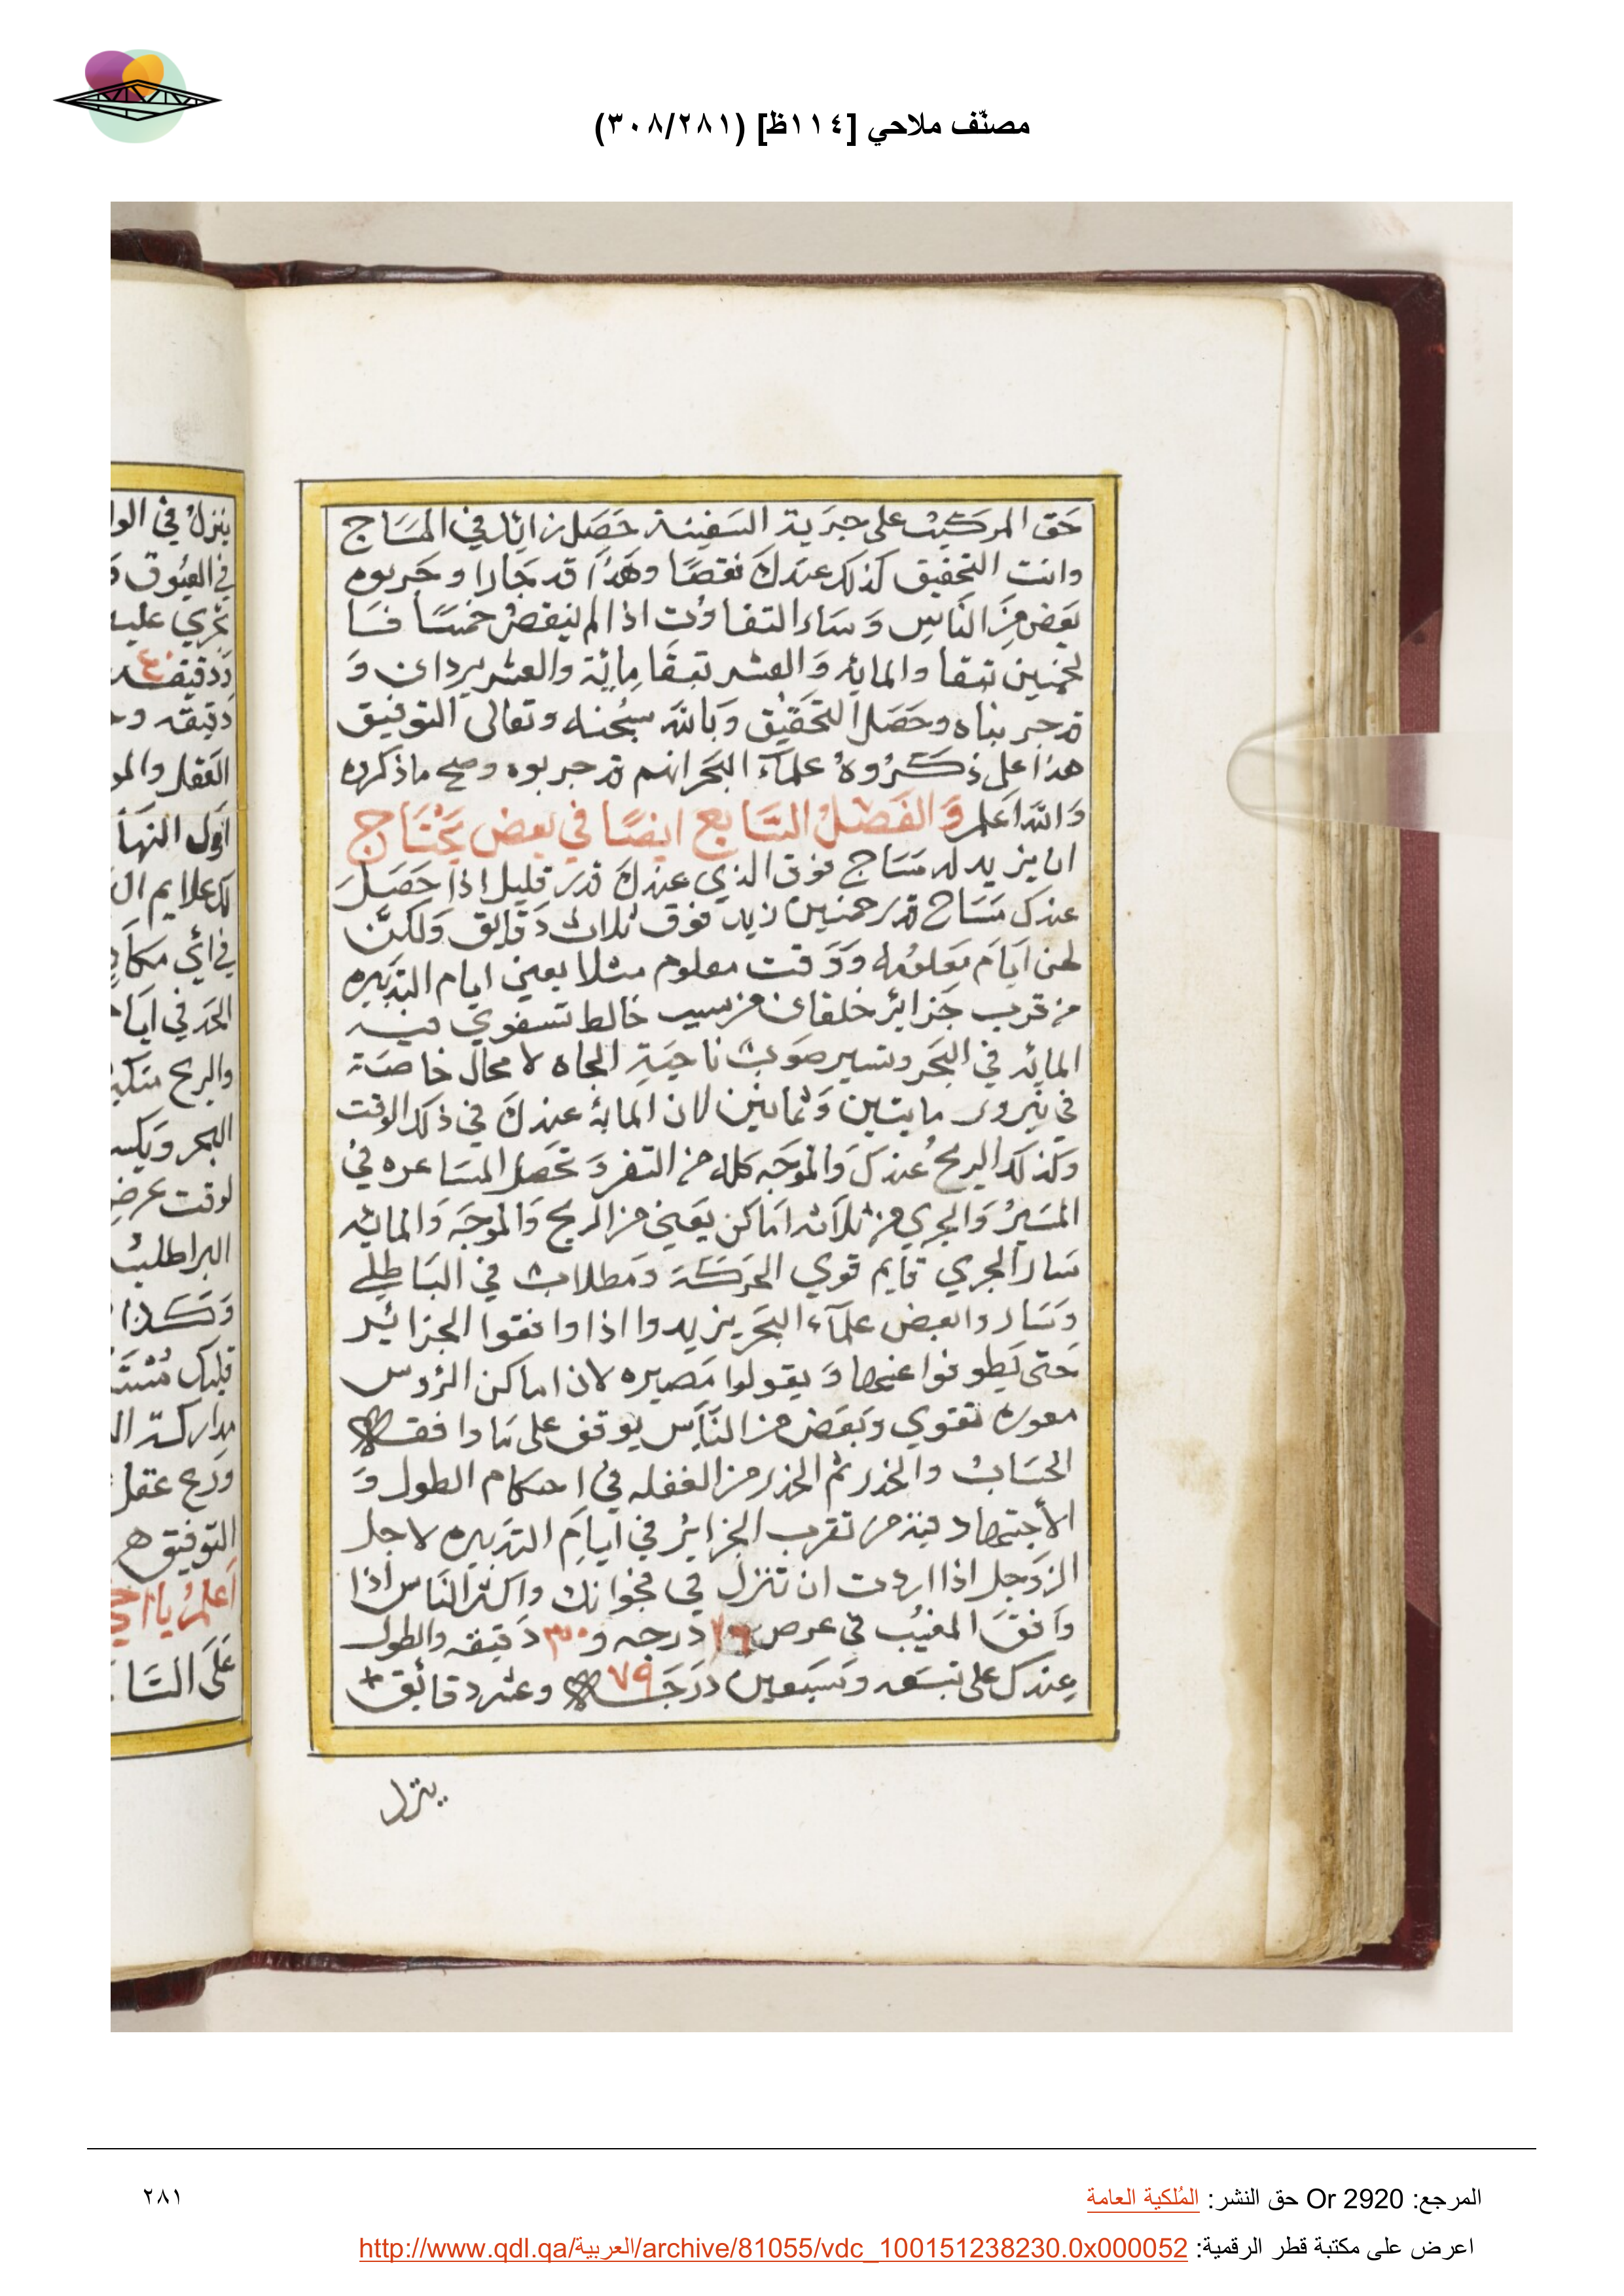 مصنّف ملاحي [١١٤ظ] (٣٠٨/٢٨١)
حَق المركبْ على جريَة السَفينة حَصَل زايد في المسَاج
وانت التحقيق كذلك عندكَ نقصًا وهَذا قد جَارا وجَربوه
بَعض مِنَ النَاسِ وَسَاء التفاوُت اذا لم ينقصْ خمسًا
تبقا والمايه وَالعشر تبقَا مِائة والعشر يردان وَ
قد جربناه وحَصَل التحَقيْق وَبالله سبُحنه وتعالى التوفيق
هذا على ذكرُوهُ علمآء البحَر انهم قد جربوه وصح ما ذكره
وَالله اَعلم وَالفَصْلُ السَّابع ايضًا في بعض يَحْتَاج
ان يزيد له مسَاج فوق الذي عندكَ قدر قليل اذا حَصَلَ
عندك مسَاج قدر خمسين زيد فوق ثلاث دَقايق وَلكنّ
لهن اَيام مَعلومُه وَوَقت معلوم مثلا يعني ايام التدبيره
من قريب جَزائر خلفات من سبب خالط تسفوي فيه
المايه في البحَر وتسير صَوبْ ناحيَةِ الجاه لا محال خاصَة
في نيروز مايتين وَثمانين لان المايهْ عندكَ في ذلك الوقت
وكذلك الريحُ عندكَ وَالموَجَه كله من التفر وَتحصَل المسَاعره في
المسَيرْ وَالجري من ثلآثه اَماكن يَعني من الريح وَالموجَه وَالمايه
سَار الجري قايم قوي الحَركَة وَمطلاب في البَاطلي
وَسَار والبعض علمآء البحَر يزيدوا اذا وافقوا الجزائر
حَتى يَطوفوا عنها وَيقولوا مَصيره لان اماكن الرؤس
معوره تقوي وبَعَض من النَاس يوقف على مَا وافقه
الحسَابْ والحذر ثم الحذر من الغفله في احكام الطول وَ
الأجتهاد فيه من تقرب الجزايرْ في اَيام التدبيره لاجل
الزوجل اذا اردت ان تنزل في فخوانك واكثر النَاس اذا
وَافقَ المغيْب في عرض ٢٦ درجه و٣٠ دَقيقه والطول
عِندكَ على تسَعه وسَبعين دَرَجَه ٧٩ وعشر دقائق
ينزل
ينزلُ في الو
في العيُوق
تجري عليه
دَدقيقه ٤٠
دَقيقه
العَقل والمو
اَوّل النهَا
لك علايم ال
في اَي مكَان
الحَد في اَيا
والريح
البحر وَيكسـ
لوقت عرض
البر اطلبْ
وَكَذا
قلبك
مدارك
ورح عقل
التوفيق
اَعلمُ يا اخي
عَلَى السَا
المرجع: Or 2920 حق النشر: المُلكية العامة
٢٨١
اعرض على مكتبة قطر الرقمية: http://www.qdl.qa/العربية/archive/81055/vdc_100151238230.0x000052